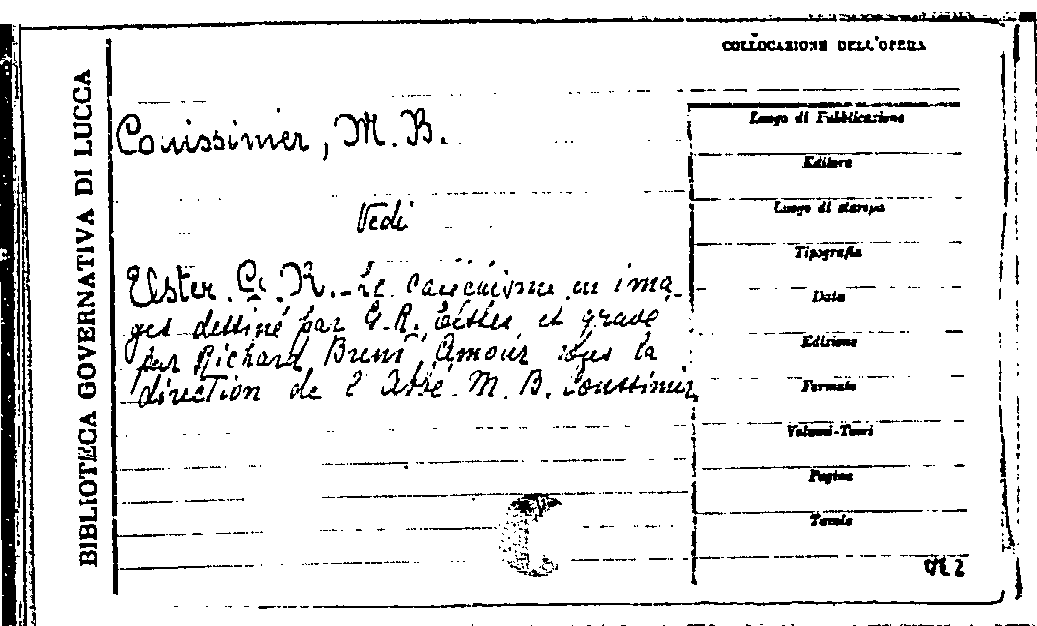 COLLOCAZIONE DELL'OPERA
BIBLIOTECA GOVERNATIVA DI LUCCA
Couissinier, M. B.
Vedi
Elster G. R. - Le catéchisme en ima-
ges dessiné par G. R. et gravé
par Richard Brend'Amour sous la
direction de l'Abbé M. B. Couissinier
Luogo di Pubblicazione
Editore
Luogo di stampa
Tipografia
Data
Edizione
Formato
Volumi-Tomi
Pagine
Tavole